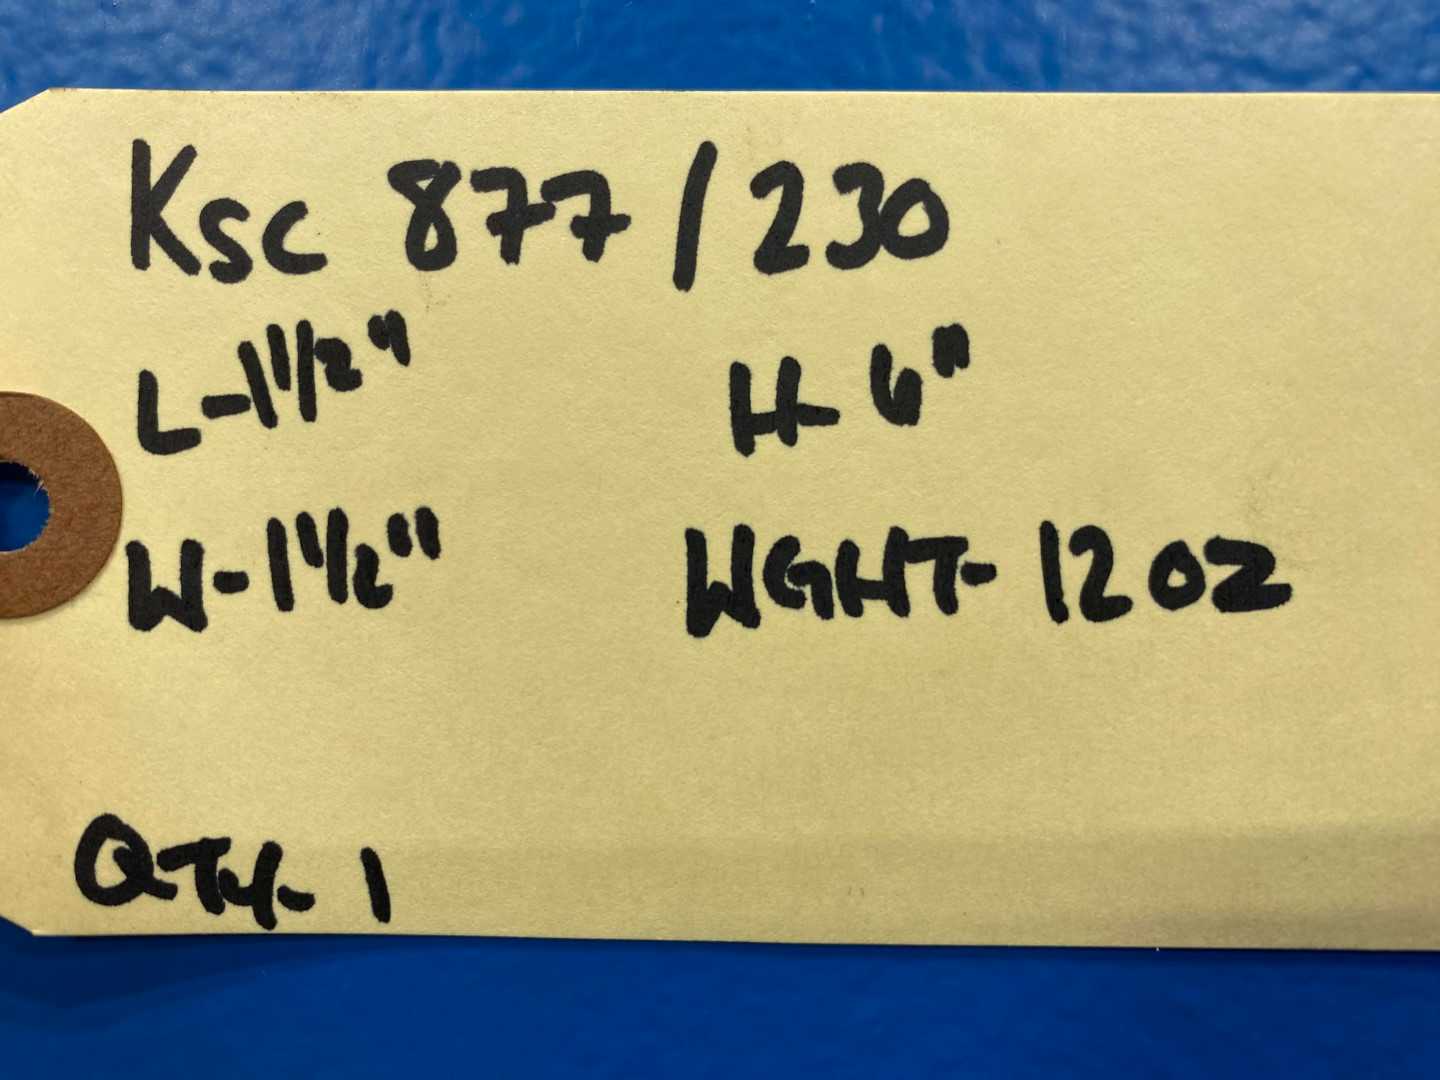 Ksc 877 / 230
L-1 1/2" H- 6"
W-1 1/2" WGHT- 12 OZ
QTY- 1